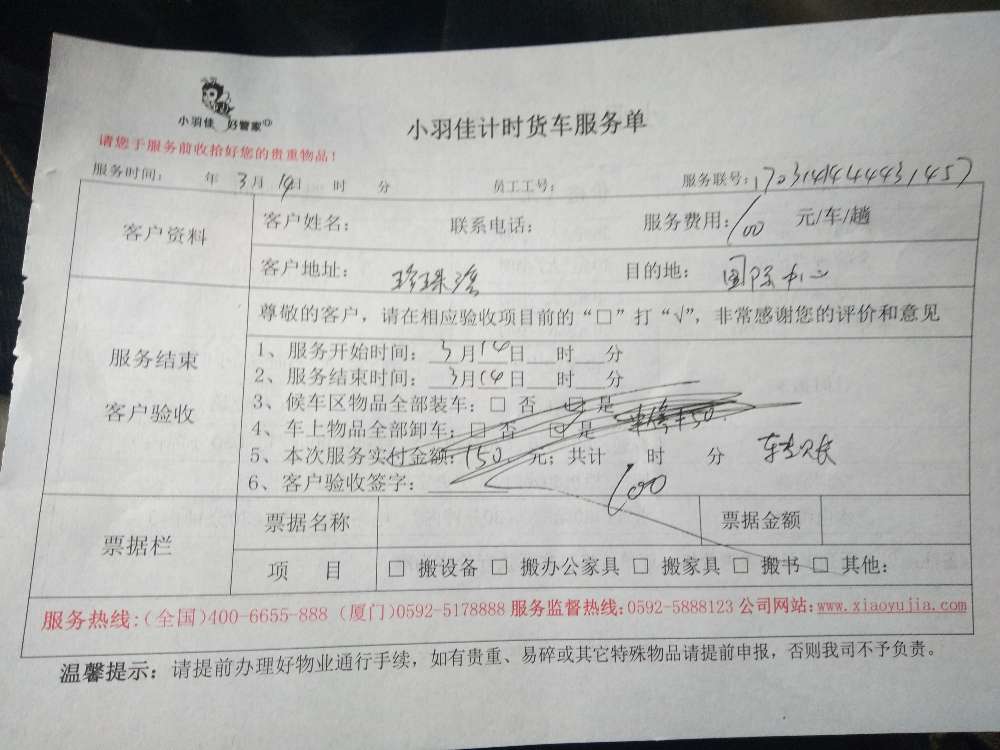 小羽佳 好管家
小羽佳计时货车服务单
请您于服务前收拾好您的贵重物品！
服务时间： 年 3月14日 时 分 员工工号： 服务联号：170314144431457
客户资料
客户姓名： 联系电话： 服务费用：100 元/车/趟
客户地址： 珍珠湾 目的地： 国际中心
服务结束
客户验收
尊敬的客户，请在相应验收项目前的“□”打“√”，非常感谢您的评价和意见
1、服务开始时间：3月14日 时 分
2、服务结束时间：3月14日 时 分
3、候车区物品全部装车：□ 否 □ 是
4、车上物品全部卸车：□ 否 □ 是
5、本次服务实付金额：150 元；共计 时 分
6、客户验收签字：
100
票据栏
票据名称 票据金额
项 目 □ 搬设备 □ 搬办公家具 □ 搬家具 □ 搬书 □ 其他：
服务热线：(全国)400-6655-888 (厦门)0592-5178888 服务监督热线：0592-5888123 公司网站：www.xiaoyujia.com
温馨提示：请提前办理好物业通行手续，如有贵重、易碎或其它特殊物品请提前申报，否则我司不予负责。